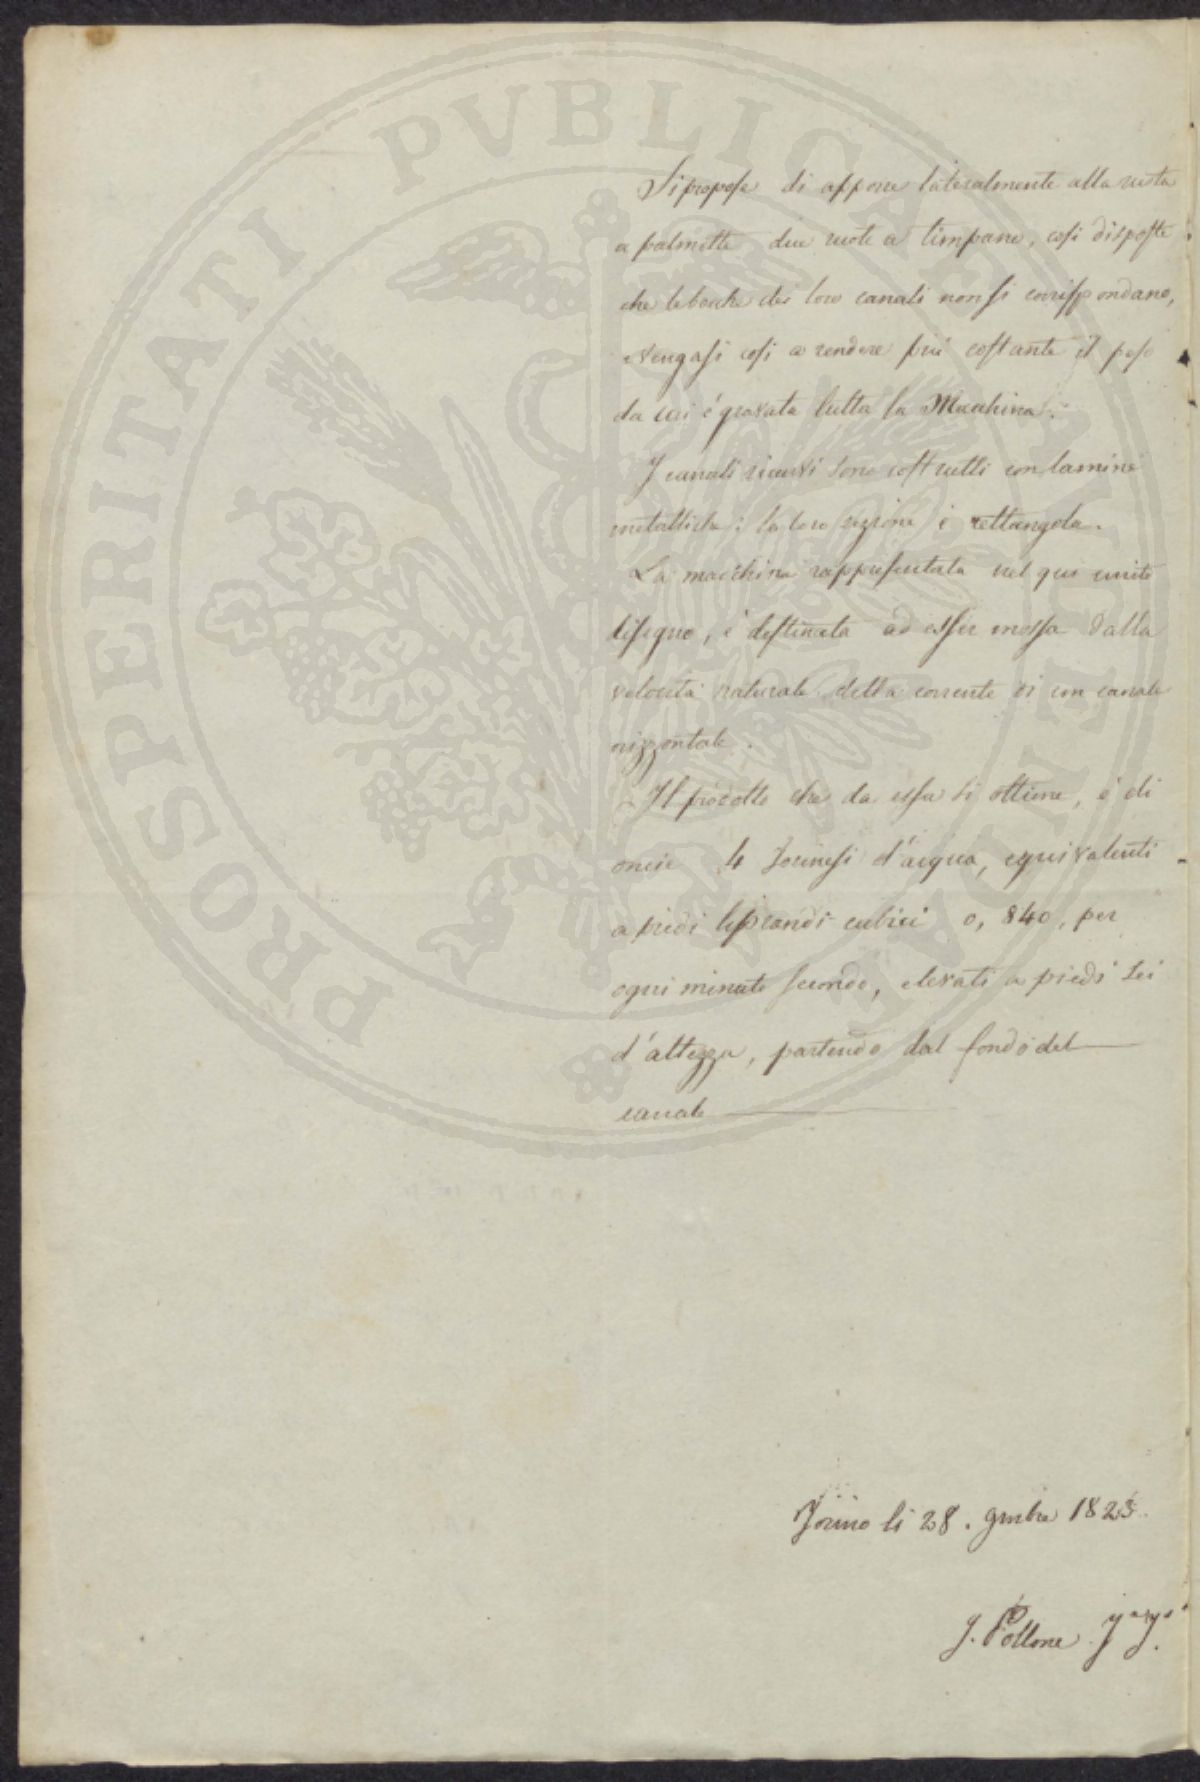 PROSPERITATI PVBLICAE AVGENDAE
Si propose di apporre lateralmente alla ruota
a palmette due ruote a timpano, così disposte
che le bocche dei loro canali non si corrispondano,
e vengasi così a rendere più costante il peso
da cui è gravata tutta la Macchina.
I canali ricurvi sono costrutti con lamine
metalliche: la loro sezione è rettangola.
La macchina rappresentata nel qui unito
disegno, è destinata ad esser mossa dalla
velocità naturale della corrente di un canale
orizzontale.
Il prodotto che da essa si ottiene, è di
oncie 4 Torinesi d'acqua, equivalenti
a piedi liprandi cubici 0,840, per
ogni minuto secondo, elevati a piedi sei
d'altezza, partendo dal fondo del
canale
Torino li 28. 9mbre 1823.
G. Pollone